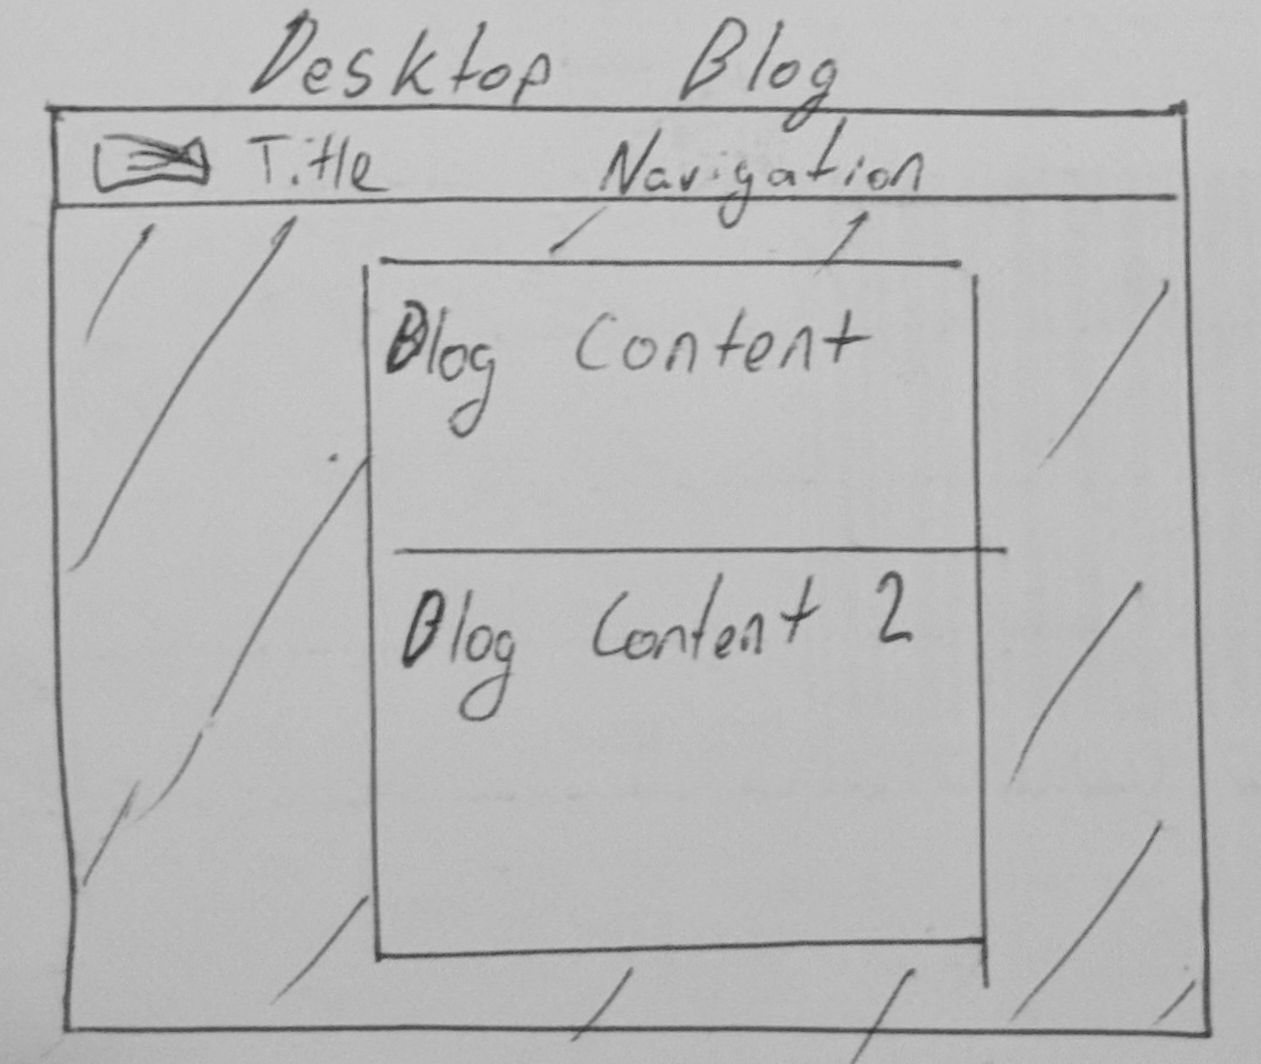 Desktop Blog
Title Navigation
Blog Content
Blog Content 2